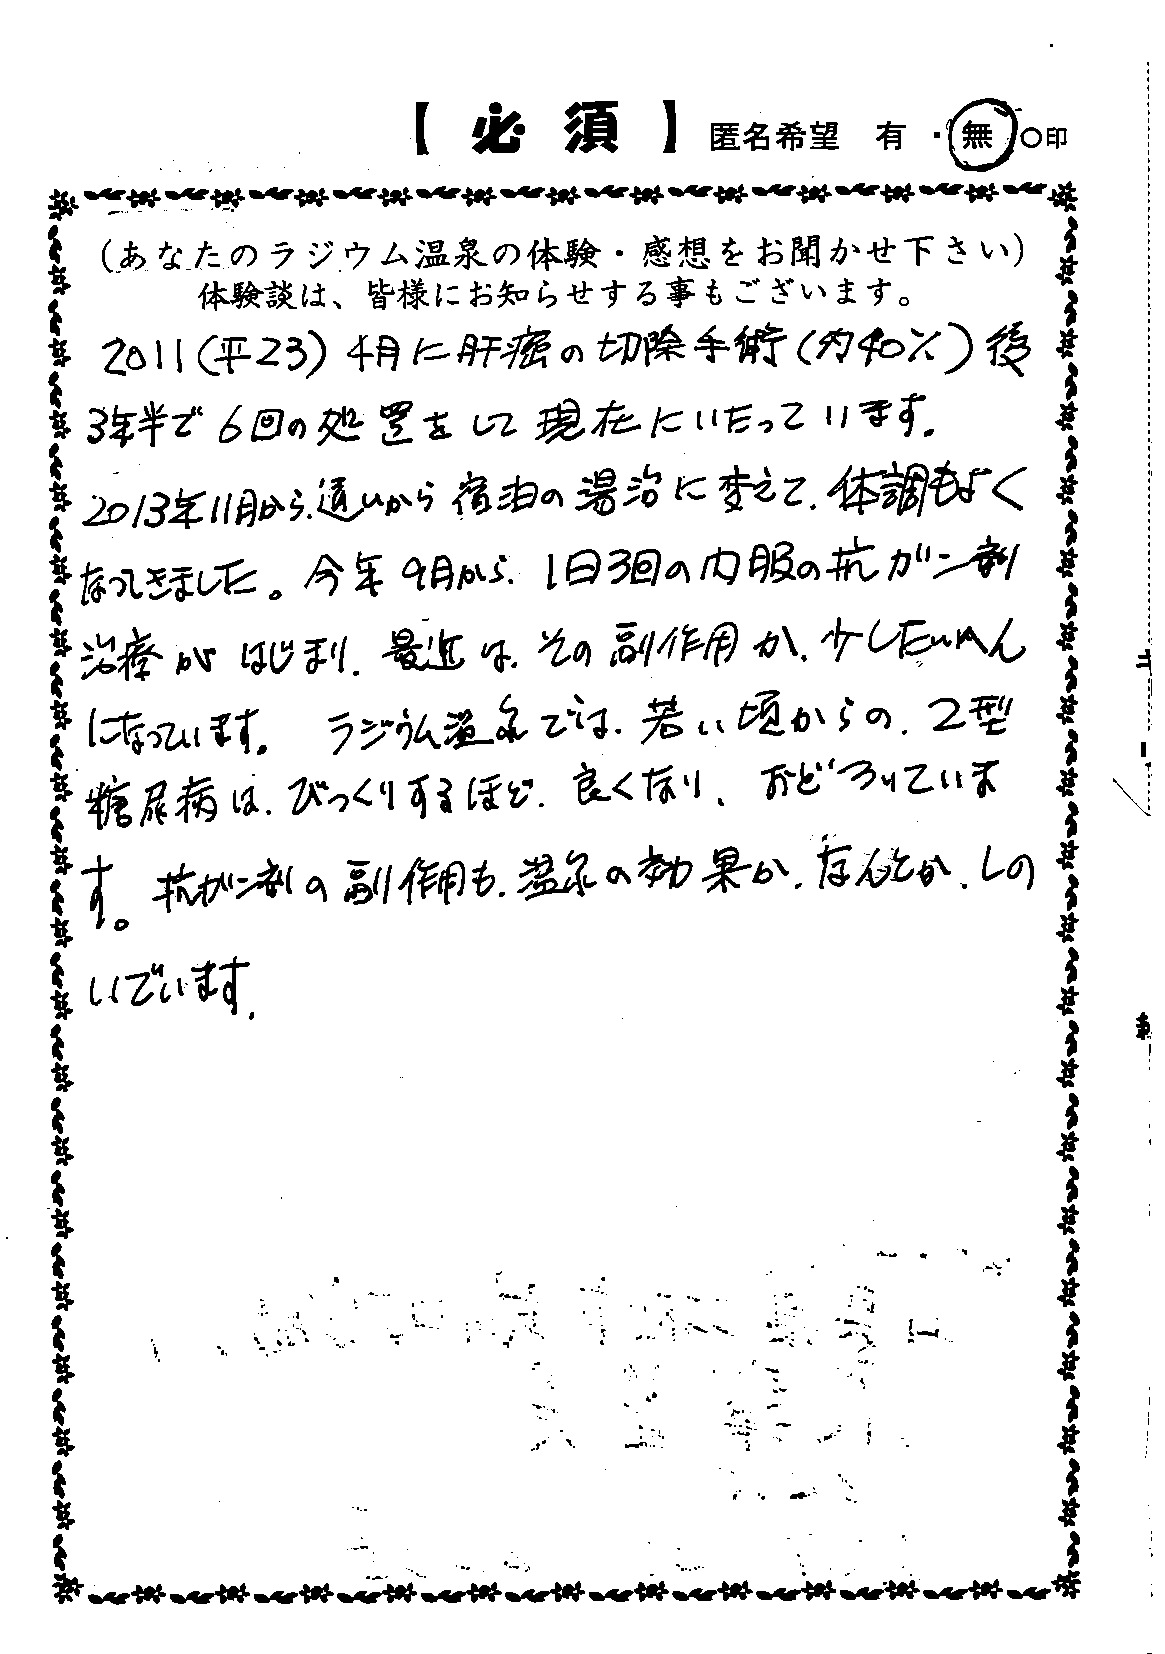 【 必 須 】 匿名希望 有 ・ 無 ○印
(あなたのラジウム温泉の体験・感想をお聞かせ下さい)
体験談は、皆様にお知らせする事もございます。
2011(平23) 4月に肝癌の切除手術(約40%)後
3年半で6回の処置をして現在にいたっています。
2013年11月から、通いから宿泊の湯治に変えて、体調もよく
なってきました。今年9月から、1日3回の内服の抗ガン剤
治療がはじまり、最近は、その副作用が、少したいへん
になっています。 ラジウム温泉では、若い頃からの、2型
糖尿病は、びっくりするほど、良くなり、おどろいていま
す。抗ガン剤の副作用も、温泉の効果か、なんとか、しの
いでいます。